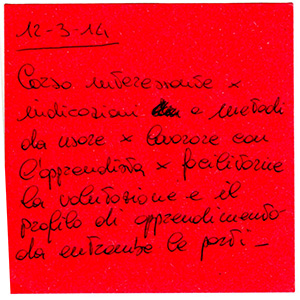 12-3-14
Corso interessante x
indicazioni e metodi
da usare x lavorare con
l'apprendista x facilitarne
la valutazione e il
profilo di apprendimento
da entrambe le parti_